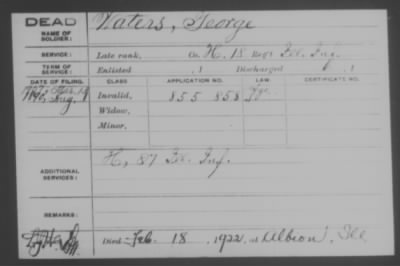 DEAD
NAME OF SOLDIER:
Waters, George
SERVICE:
Late rank, Co. H, 18 Reg't Ill. Inf.
TERM OF SERVICE:
Enlisted , 1 Discharged , 1
DATE OF FILING. CLASS. APPLICATION NO. LAW. CERTIFICATE NO.
Aug. Invalid, 855 858
Widow,
Minor,
ADDITIONAL SERVICES:
H, 87 Ill. Inf.
REMARKS:
Died Feb. 18, 1922, at Albion, Ill.